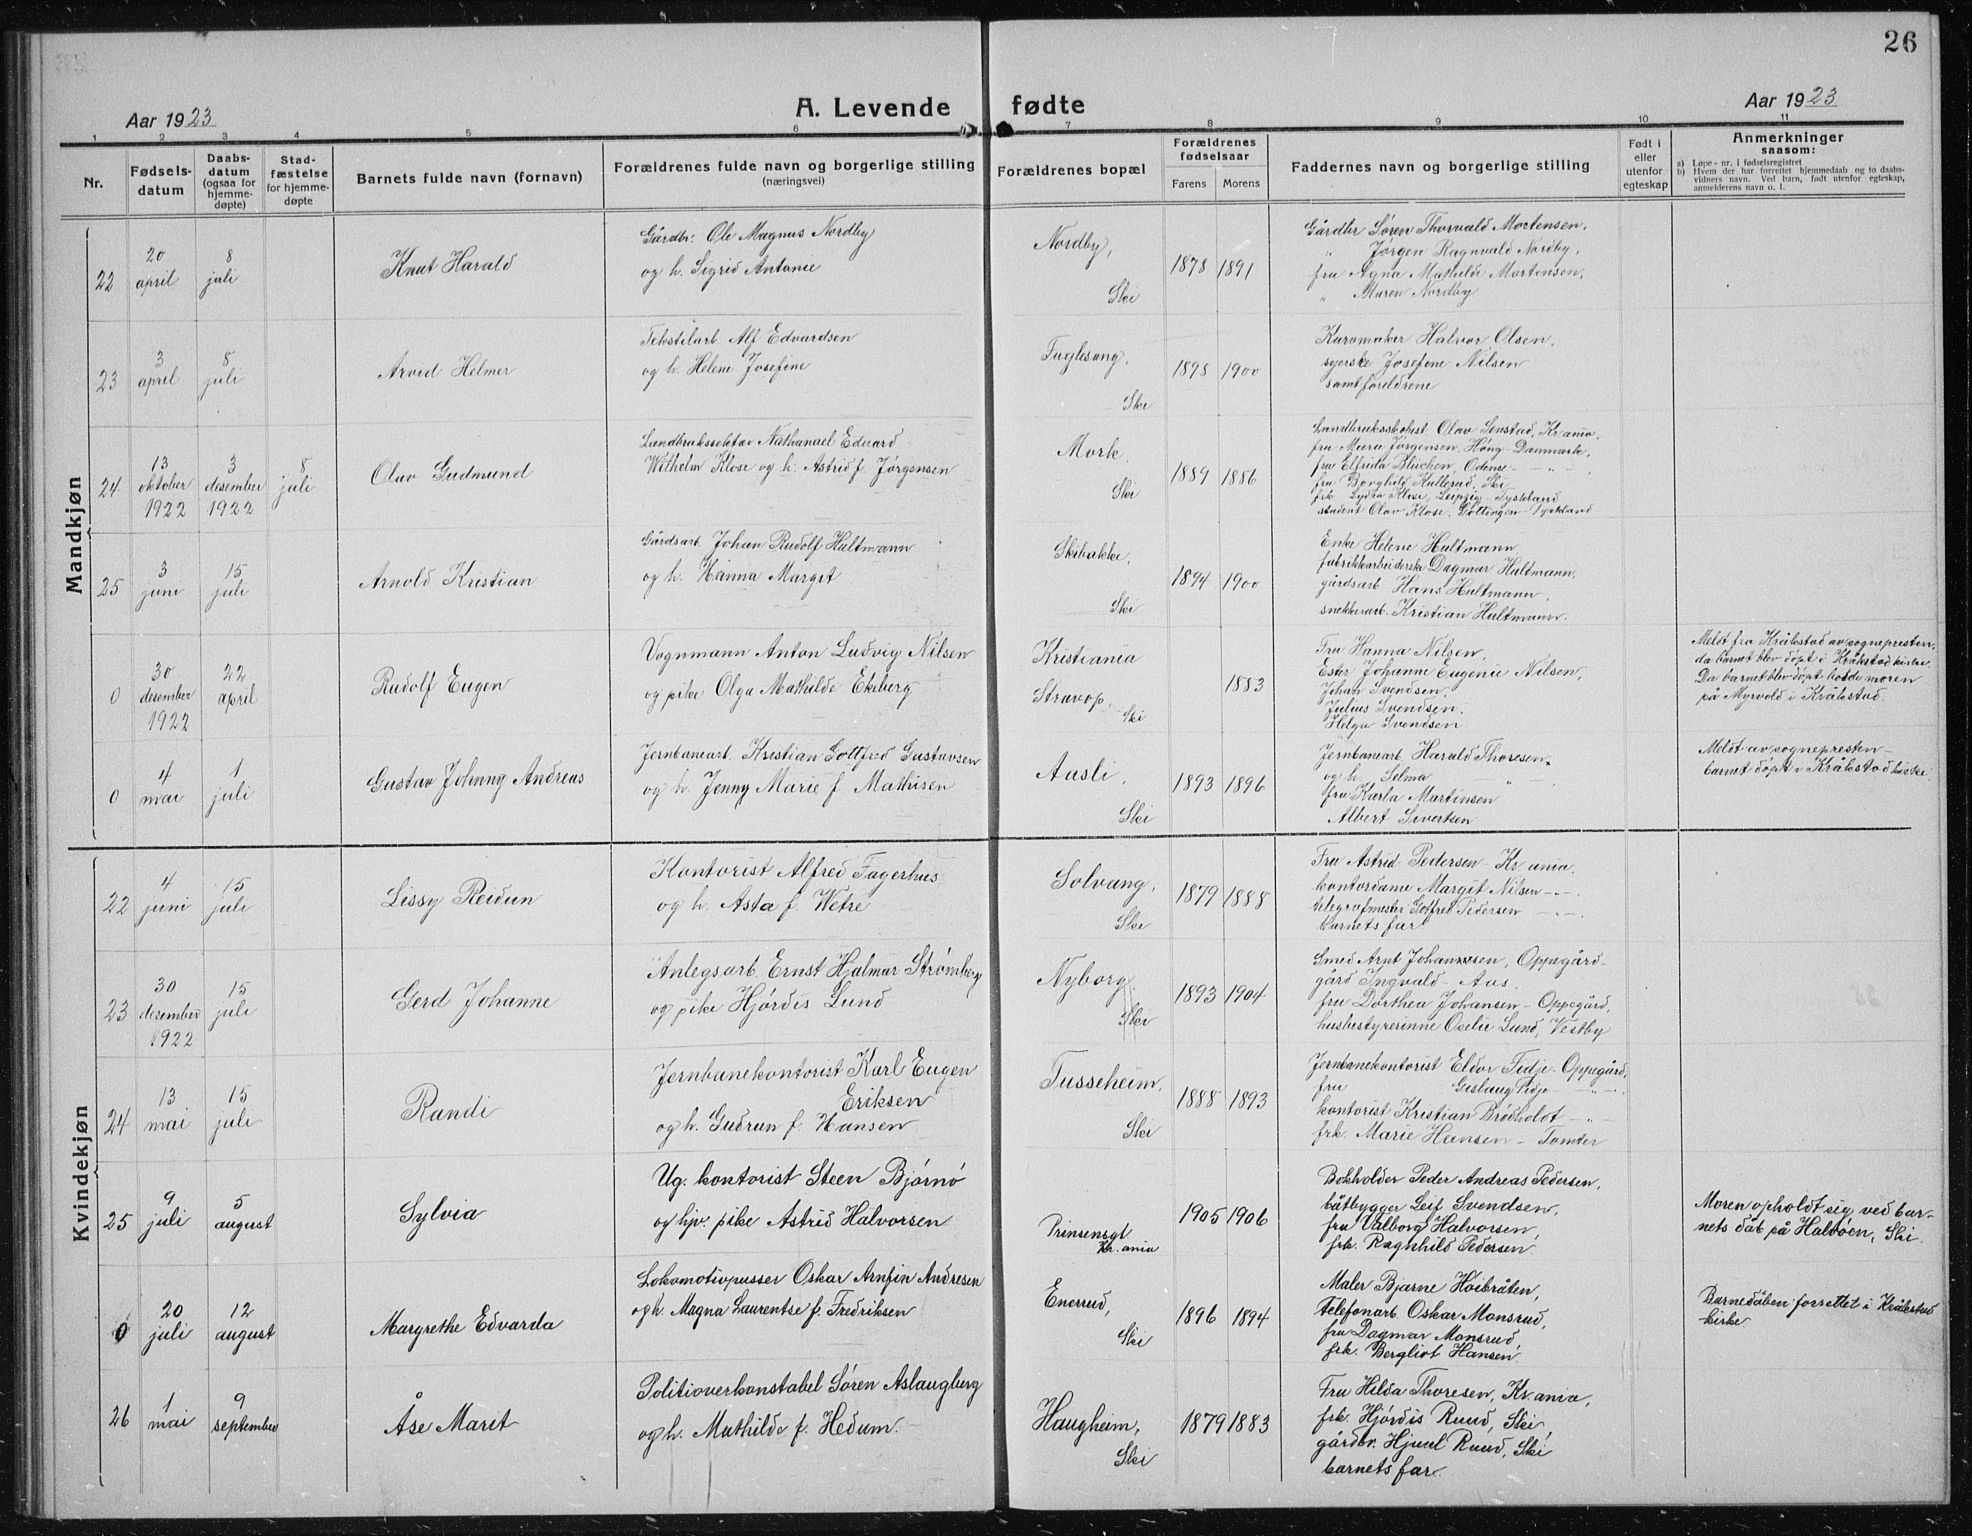 26
Aar 1923
A. Levende fødte
Aar 1923
1 2 3 4 5 6 7 8 9 10 11
Nr.
Fødselsdatum
Daabsdatum (ogsaa for hjemmedøpte)
Stadfæstelse for hjemmedøpte
Barnets fulde navn (fornavn)
Forældrenes fulde navn og borgerlige stilling
(næringsvei)
Forældrenes bopæl
Forældrenes fødselsaar
Farens Morens
Faddernes navn og borgerlige stilling
Født i eller utenfor egteskap
Anmerkninger
saasom:
a) Løpe-nr. i fødselsregistret
b) Hvem der har forrettet hjemmedaab og to daabsvidners navn. Ved barn, født utenfor egteskap, anmelderens navn o. l.
Mandkjøn
22
20 april
8 juli
Knut Harald
Gårdbr. Ole Magnus Nordby
og h. Sigrid Antonie
Nordby,
Ski
1878 1891
Gårdbr Søren Thorvald Mortensen,
" Jørgen Ragnvald Nordby,
fru Agna Mathilde Mortensen,
" Maren Nordby
23
3 april
8 juli
Arvid Helmer
Tekstilarb. Alf Edvardsen
og h. Helene Josefine
Fuglesang,
Ski
1898 1900
Kurvmaker Halvor Olsen,
syerske Josefine Nilsen
samt foreldrene
24
13 oktober 1922
3 desember 1922
8 juli
Olav Gudmund
Landbrukssekretær Nathanael Eduard
Wilhelm Klose og h. Astrid f. Jørgensen
Mork,
Ski
1889 1886
Olav Senstad, Kr.ania,
fru Marie Jørgensen, Høng Danmark,
fru Elfrida Blücken, Odense - " -
fru Borghild Kullerud, Ski
frk Lydia Klose, Leipzig - Tyskland
student Olav Klose, Göttingen - Tyskland
25
3 juni
15 juli
Arnold Kristian
Gårdsarb. Johan Rudolf Hultmann
og h. Hanna Margit
Skibakke,
Ski
1894 1900
Enke Helene Hultmann
fabrikkarbeiderske Dagmar Hultmann,
gårdsarb Hans Hultmann,
snekkerarb. Kristian Hultmann.
0
30 desember 1922
22 april
Rudolf Eugen
Vognmann Anton Ludvig Nilsen
og pike Olga Mathilde Ekeberg
Kristiania
Stravop,
Ski
1883
Fru Hanna Nilsen,
Ester Johanne Eugenie Nilsen,
Johan Svendsen,
Julius Svendsen,
Helga Svendsen
Meldt fra Kråkstad av sognepresten,
da barnet blev døpt i Kråkstad kirke.
Da barnet blev døpt bodde moren
på Myrvold i Kråkstad.
0
4 mai
1 juli
Gustav Johnny Andreas
Jernbanearb. Kristian Gottfred Gustavsen
og h. Jenny Marie f. Mathisen
Ausli,
Ski
1893 1896
Jernbanearb. Harald Thoresen,
og h. Selma "
fru Karla Martinsen
Albert Sivertsen
Meldt av sognepresten -
barnet døpt i Kråkstad kirke.
Kvindekjøn
22
4 juni
15 juli
Lissy Reidun
Kontorist Alfred Fagerhus
og h. Asta f. Wetre
Solvang,
Ski
1879 1888
Fru Astrid Pedersen - Kr.ania,
kontordame Margit Nilsen - " -
telegrafmester Gotfred Pedersen - " -
barnets far
23
30 desember 1922
15 juli
Gerd Johanne
Anlegsarb. Ernst Hjalmar Strømberg
og pike Hjørdis Lund
Nyborg,
Ski
1893 1904
Smed Arnt Johannesen, Oppegård -
gård Ingvald - Aas,
fru Dorthea Johansen - Oppegård,
husbestyrerinne Oselie Lund, Vestby
24
13 mai
15 juli
Randi
Jernbanekontorist Karl Eugen
Eriksen
og h. Gudrun f. Hansen
Tusseheim,
Ski
1888 1893
Jernbanekontorist Eldor Fidje - Oppegård,
fru Gislaug Fidje - " -
kontorist Kristian Brødholdt - " -
frk. Marie Hansen - Tomter
25
9 juli
5 august
Sylvia
Ug. kontorist Steen Bjørnø
og hjv. pike Astrid Halvorsen
Prinsensgt
Kr.ania
1905 1906
Bokholder Peder Andreas Pedersen,
båtbygger Leif Svendsen,
fru Valborg Halvorsen,
frk. Ragnhild Pedersen
Moren opholdt sig ved bar-
nets dåb på Haldøen, Ski.
0
20 juli
12 august
Margrethe Edvarda
Lokomotivpusser Oskar Arnfin Andresen
og h. Magna Laurentse f. Fredriksen
Enerud,
Ski
1896 1894
Maler Bjarne Høibråten,
telefonarb Oskar Monsrud,
fru Dagmar Monsrud,
frk. Bergliot Hansen
Barnedåben forrettet i Kråkstad
kirke
26
1 mai
9 september
Åse Marit
Politioverkonstabel Søren Aslaugberg
og h. Mathilde f. Hedum.
Haugheim,
Ski
1879 1883
Fru Hilda Thoresen, Kr.ania,
frk. Hjørdis Ruud, Ski,
gårdbr. Hjuul Ruud, Ski
barnets far.